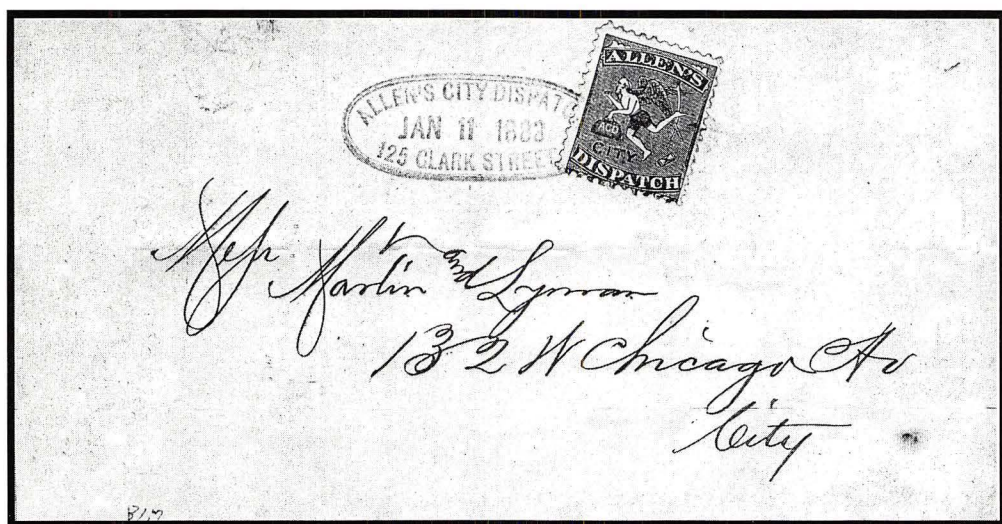 ALLEN'S CITY DISPATC
JAN 11 1883
125 CLARK STREET
ALLEN'S
ACD
CITY
DISPATCH
Mess. Martin and Lyman
132 W Chicago Av
City